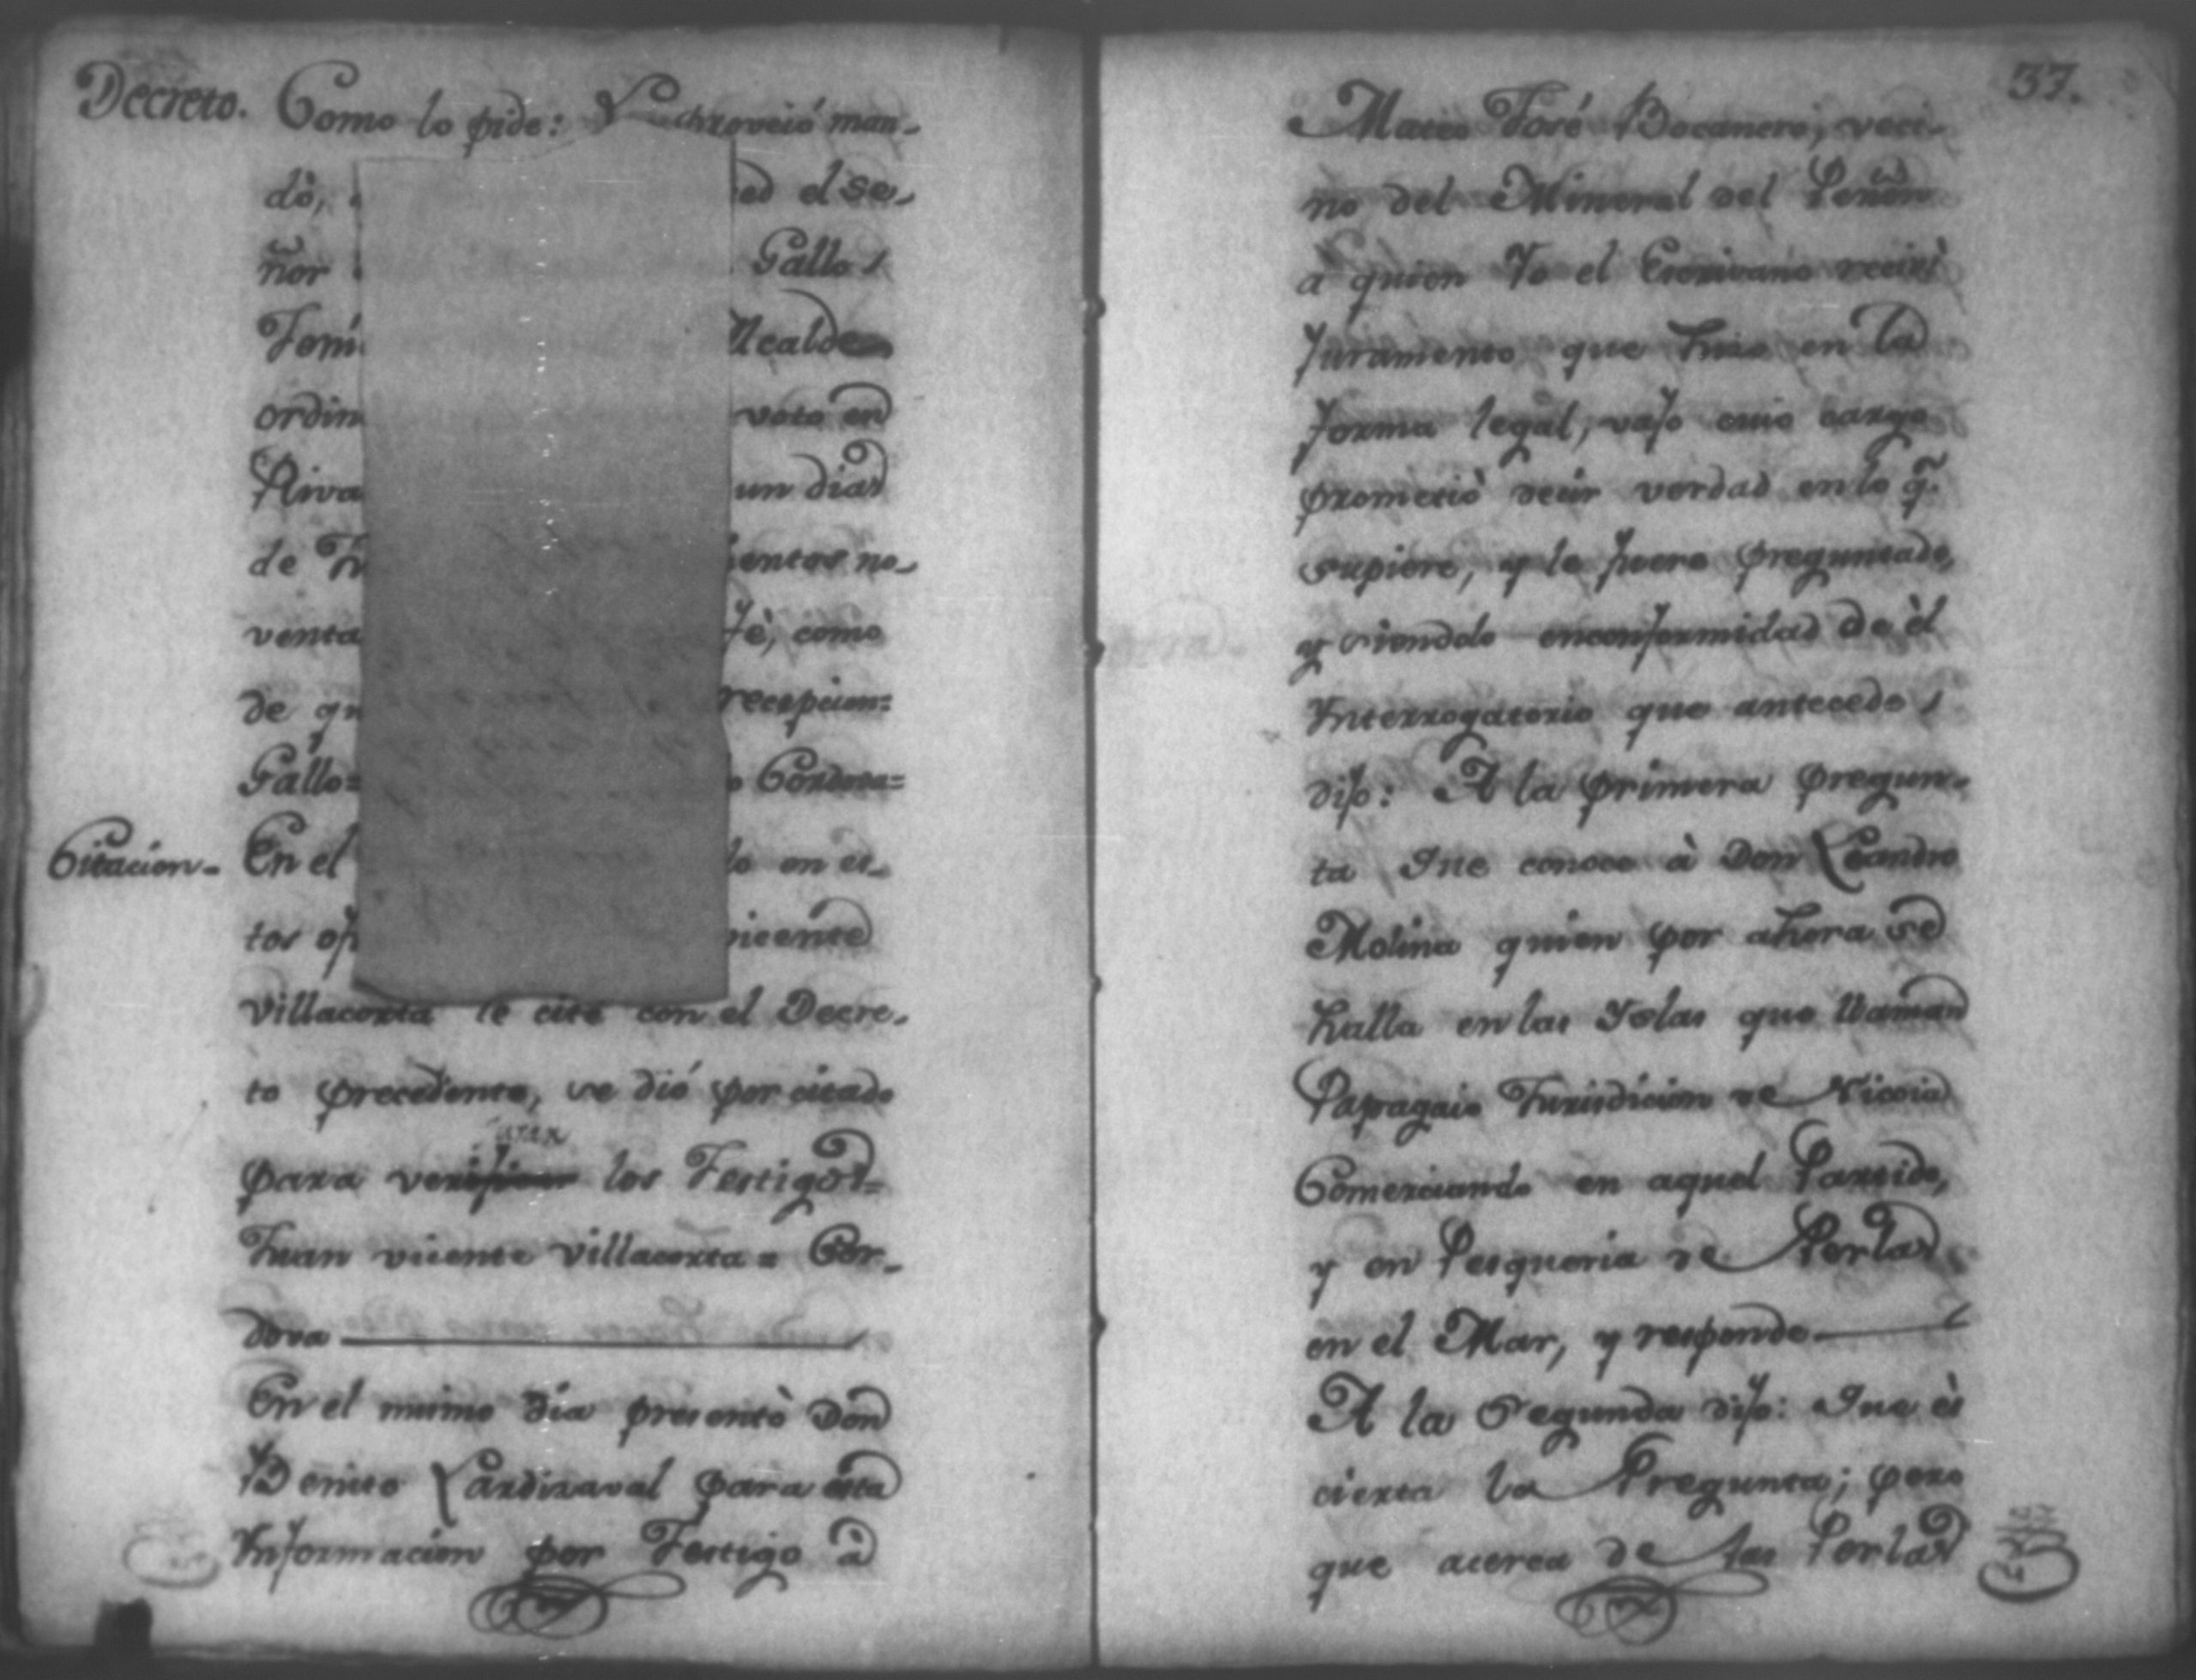 Decreto. Como lo pide: Y proveió man-
dò, ed el se-
ñor Gallo
Alcalde
ordin voto en
Riva un dias
de entos no-
venta fè, como
de qu recepcion=
Gallo= Cordova=
Citacion- En el en es-
tos ofi vicente
villacorta le cité con el Decre-
to precedente, se dió por citado
para verificar los Testigos=
Juan vicente villacorta= Cor-
dova
En el mismo dia presentò Don
Benito Lardizaval para esta
Ynformacion por Testigo à
37.
Mateo José Bocanero, veci-
no del Mineral del Peñon
à quien Yo el Escrivano recivì
Juramento que hizo en la
forma legal, vajo cuio cargo
prometiò decir verdad en lo q.
supiere, y le fuere preguntado,
y siendolo enconformidad de èl
Ynterrogatorio que antecede
dijo: A la primera pregun-
ta Que conoce à Don Leandro
Molina quien por ahora se
halla en las Yslas que llaman
Papagaio Jurisdicion de Nicoia
Comerciando en aquel Partido,
y en Pesqueria de Perlas
en el Mar, y responde
A la Segunda dijo: Que ès
cierta la Pregunta; pero
que acerca de las Perlas